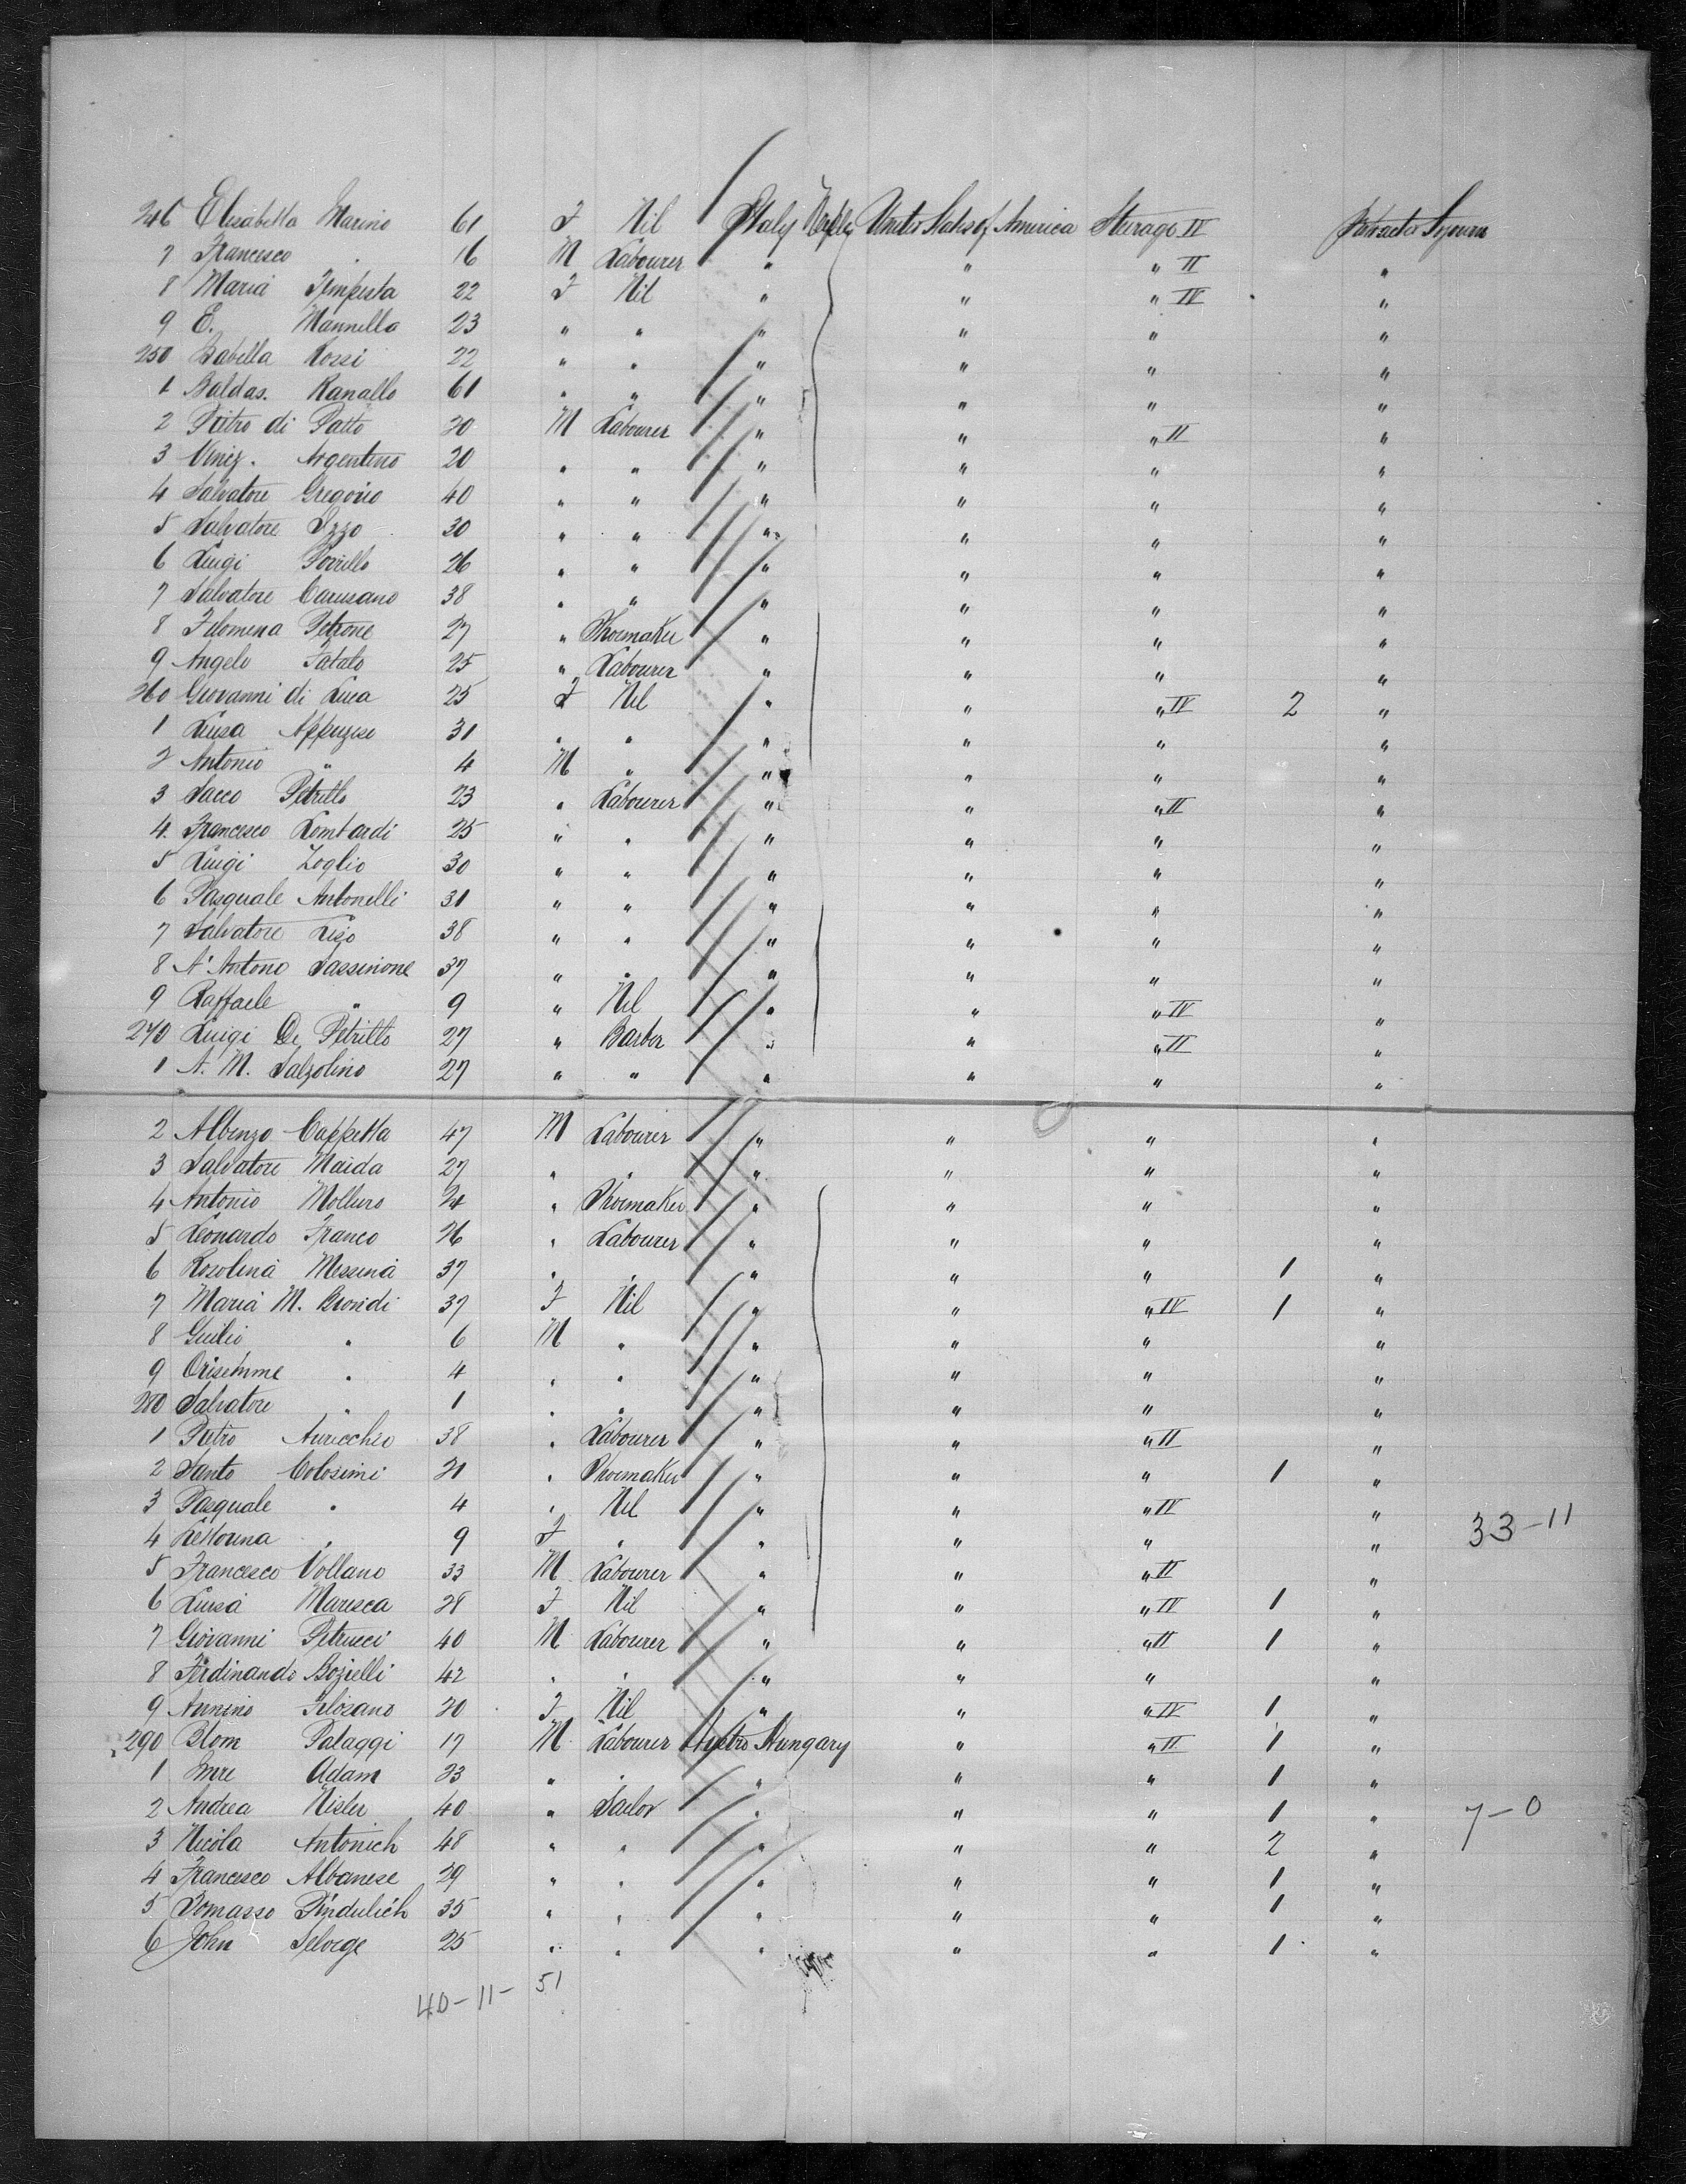 246 Elisabetta Marino 61 F Nil Italy Naples United States of America Steerage IV Protracted Sojourn
7 Francesco " 16 M Labourer " " " II "
8 Maria Tempesta 22 F Nil " " " IV "
9 E. Mannella 23 " " " " " "
250 Isabella Rossi 22 " " " " " "
1 Baldas. Ranallo 61 " " " " " "
2 Pietro di Patto 20 M Labourer " " " II "
3 Vinez. Argentino 20 " " " " " "
4 Salvatore Gregorio 40 " " " " " "
5 Salvatore Izzo 30 " " " " " "
6 Luigi 26 " " " " " "
7 Salvatore Carusano 38 " " " " " "
8 Filomena Petrone 27 " Shoemaker " " " "
9 Angelo Fatalo 25 " Labourer " " " "
260 Giovanni di Luca 25 F Nil " " " IV 2 "
1 Luisa Appugese 31 " " " " " "
2 Antonio " 4 M " " " " "
3 Sacco Petrillo 23 " Labourer " " " II "
4. Francesco Lombardi 25 " " " " " "
5 Luigi Zoglio 30 " " " " " "
6 Pasquale Antonelli 31 " " " " " "
7 Salvatore 38 " " " " " "
8 A. Antono Sassinone 37 " " " " " "
9 Raffaele " 9 " Nil " " " IV "
270 Luigi De Petrillo 27 " Barber " " " II "
1 A. M. Salzolino 27 " " " " " "
2 Albenzo Cappetta 47 M Labourer " " " "
3 Salvatore Maida 27 " " " " " "
4 Antonio Molluro 24 " Shoemaker " " " "
5 Leonardo Franco 26 " Labourer " " " "
6 Rosolina Messina 37 " " " " " 1 "
7 Maria M. Biondi 37 F Nil " " " IV 1 "
8 Guilio " 6 M " " " " "
9 Orisemme " 4 " " " " " "
280 Salvatore " 1 " " " " " "
1 Pietro Auricchio 38 " Labourer " " " II "
2 Santo Colosimi 31 " Shoemaker " " " 1 "
3 Pasquale " 4 " Nil " " " IV "
4 " 9 F " " " " " 33-11
5 Francesco Vollano 33 M Labourer " " " II "
6 Luisa Maresca 28 F Nil " " " IV 1 "
7 Giovanni Petrucci 40 M Labourer " " " II 1 "
8 Ferdinando Bozielli 42 " " " " " "
9 Annino Filosano 20 F Nil " " " IV 1 "
290 Blom Palaggi 17 M Labourer Austro Hungary " " II 1 "
1 Imre Adam 23 " " " " " 1 "
2 Andrea Nisler 40 " Sailor " " " 1 " 7-0
3 Nicola Antonich 48 " " " " " 2 "
4 Francesco Albanese 29 " " " " " 1 "
5 Tomasso Pindulich 35 " " " " " 1 "
6 John Selorge 25 " " " " " 1 "
40-11- 51